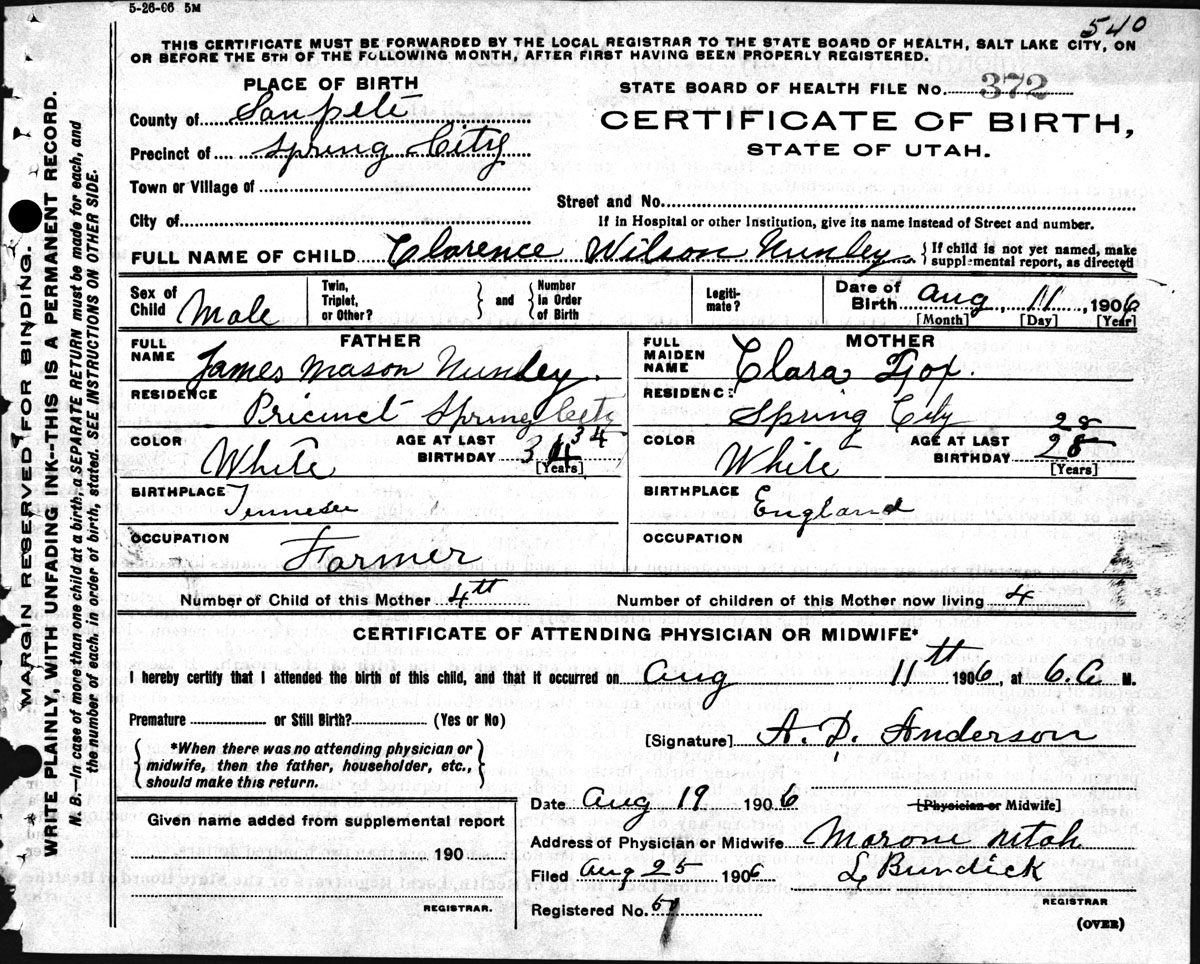 5-26-06 5M
540
THIS CERTIFICATE MUST BE FORWARDED BY THE LOCAL REGISTRAR TO THE STATE BOARD OF HEALTH, SALT LAKE CITY, ON
OR BEFORE THE 5TH OF THE FOLLOWING MONTH, AFTER FIRST HAVING BEEN PROPERLY REGISTERED.
PLACE OF BIRTH
STATE BOARD OF HEALTH FILE No. 372
County of Sanpete
CERTIFICATE OF BIRTH,
Precinct of Spring City
STATE OF UTAH.
Town or Village of
Street and No.
City of
If in Hospital or other Institution, give its name instead of Street and number.
FULL NAME OF CHILD Clarence Wilson Nunley { If child is not yet named, make
supplemental report, as directed
Sex of Child Male Twin, Triplet, or Other? } and { Number in Order of Birth Legiti-mate? Date of Birth Aug 11, 1906
[Month] [Day] [Year]
FATHER
FULL NAME James Mason Nunley.
RESIDENCE Pricinct Spring City
COLOR White AGE AT LAST BIRTHDAY 34
[Years]
BIRTHPLACE Tennesee
OCCUPATION Farmer
MOTHER
FULL MAIDEN NAME Clara
RESIDENC: Spring City
COLOR White AGE AT LAST BIRTHDAY 28 28
[Years]
BIRTHPLACE England
OCCUPATION
Number of Child of this Mother 4th Number of children of this Mother now living 4
CERTIFICATE OF ATTENDING PHYSICIAN OR MIDWIFE*
I hereby certify that I attended the birth of this child, and that it occurred on Aug 11th 1906, at 6. A M.
Premature or Still Birth? (Yes or No)
[Signature] A. D. Anderson
{ *When there was no attending physician or
midwife, then the father, householder, etc.,
should make this return. }
Date Aug 19 1906 [Physician or Midwife]
Given name added from supplemental report
190
REGISTRAR.
Address of Physician or Midwife Moroni Utah
Filed Aug 25 1906 L Bundick
REGISTRAR
Registered No.
(OVER)
MARGIN RESERVED FOR BINDING.
WRITE PLAINLY, WITH UNFADING INK--THIS IS A PERMANENT RECORD.
N. B.—In case of more than one child at a birth, a SEPARATE RETURN must be made for each, and
the number of each, in order of birth, stated. SEE INSTRUCTIONS ON OTHER SIDE.